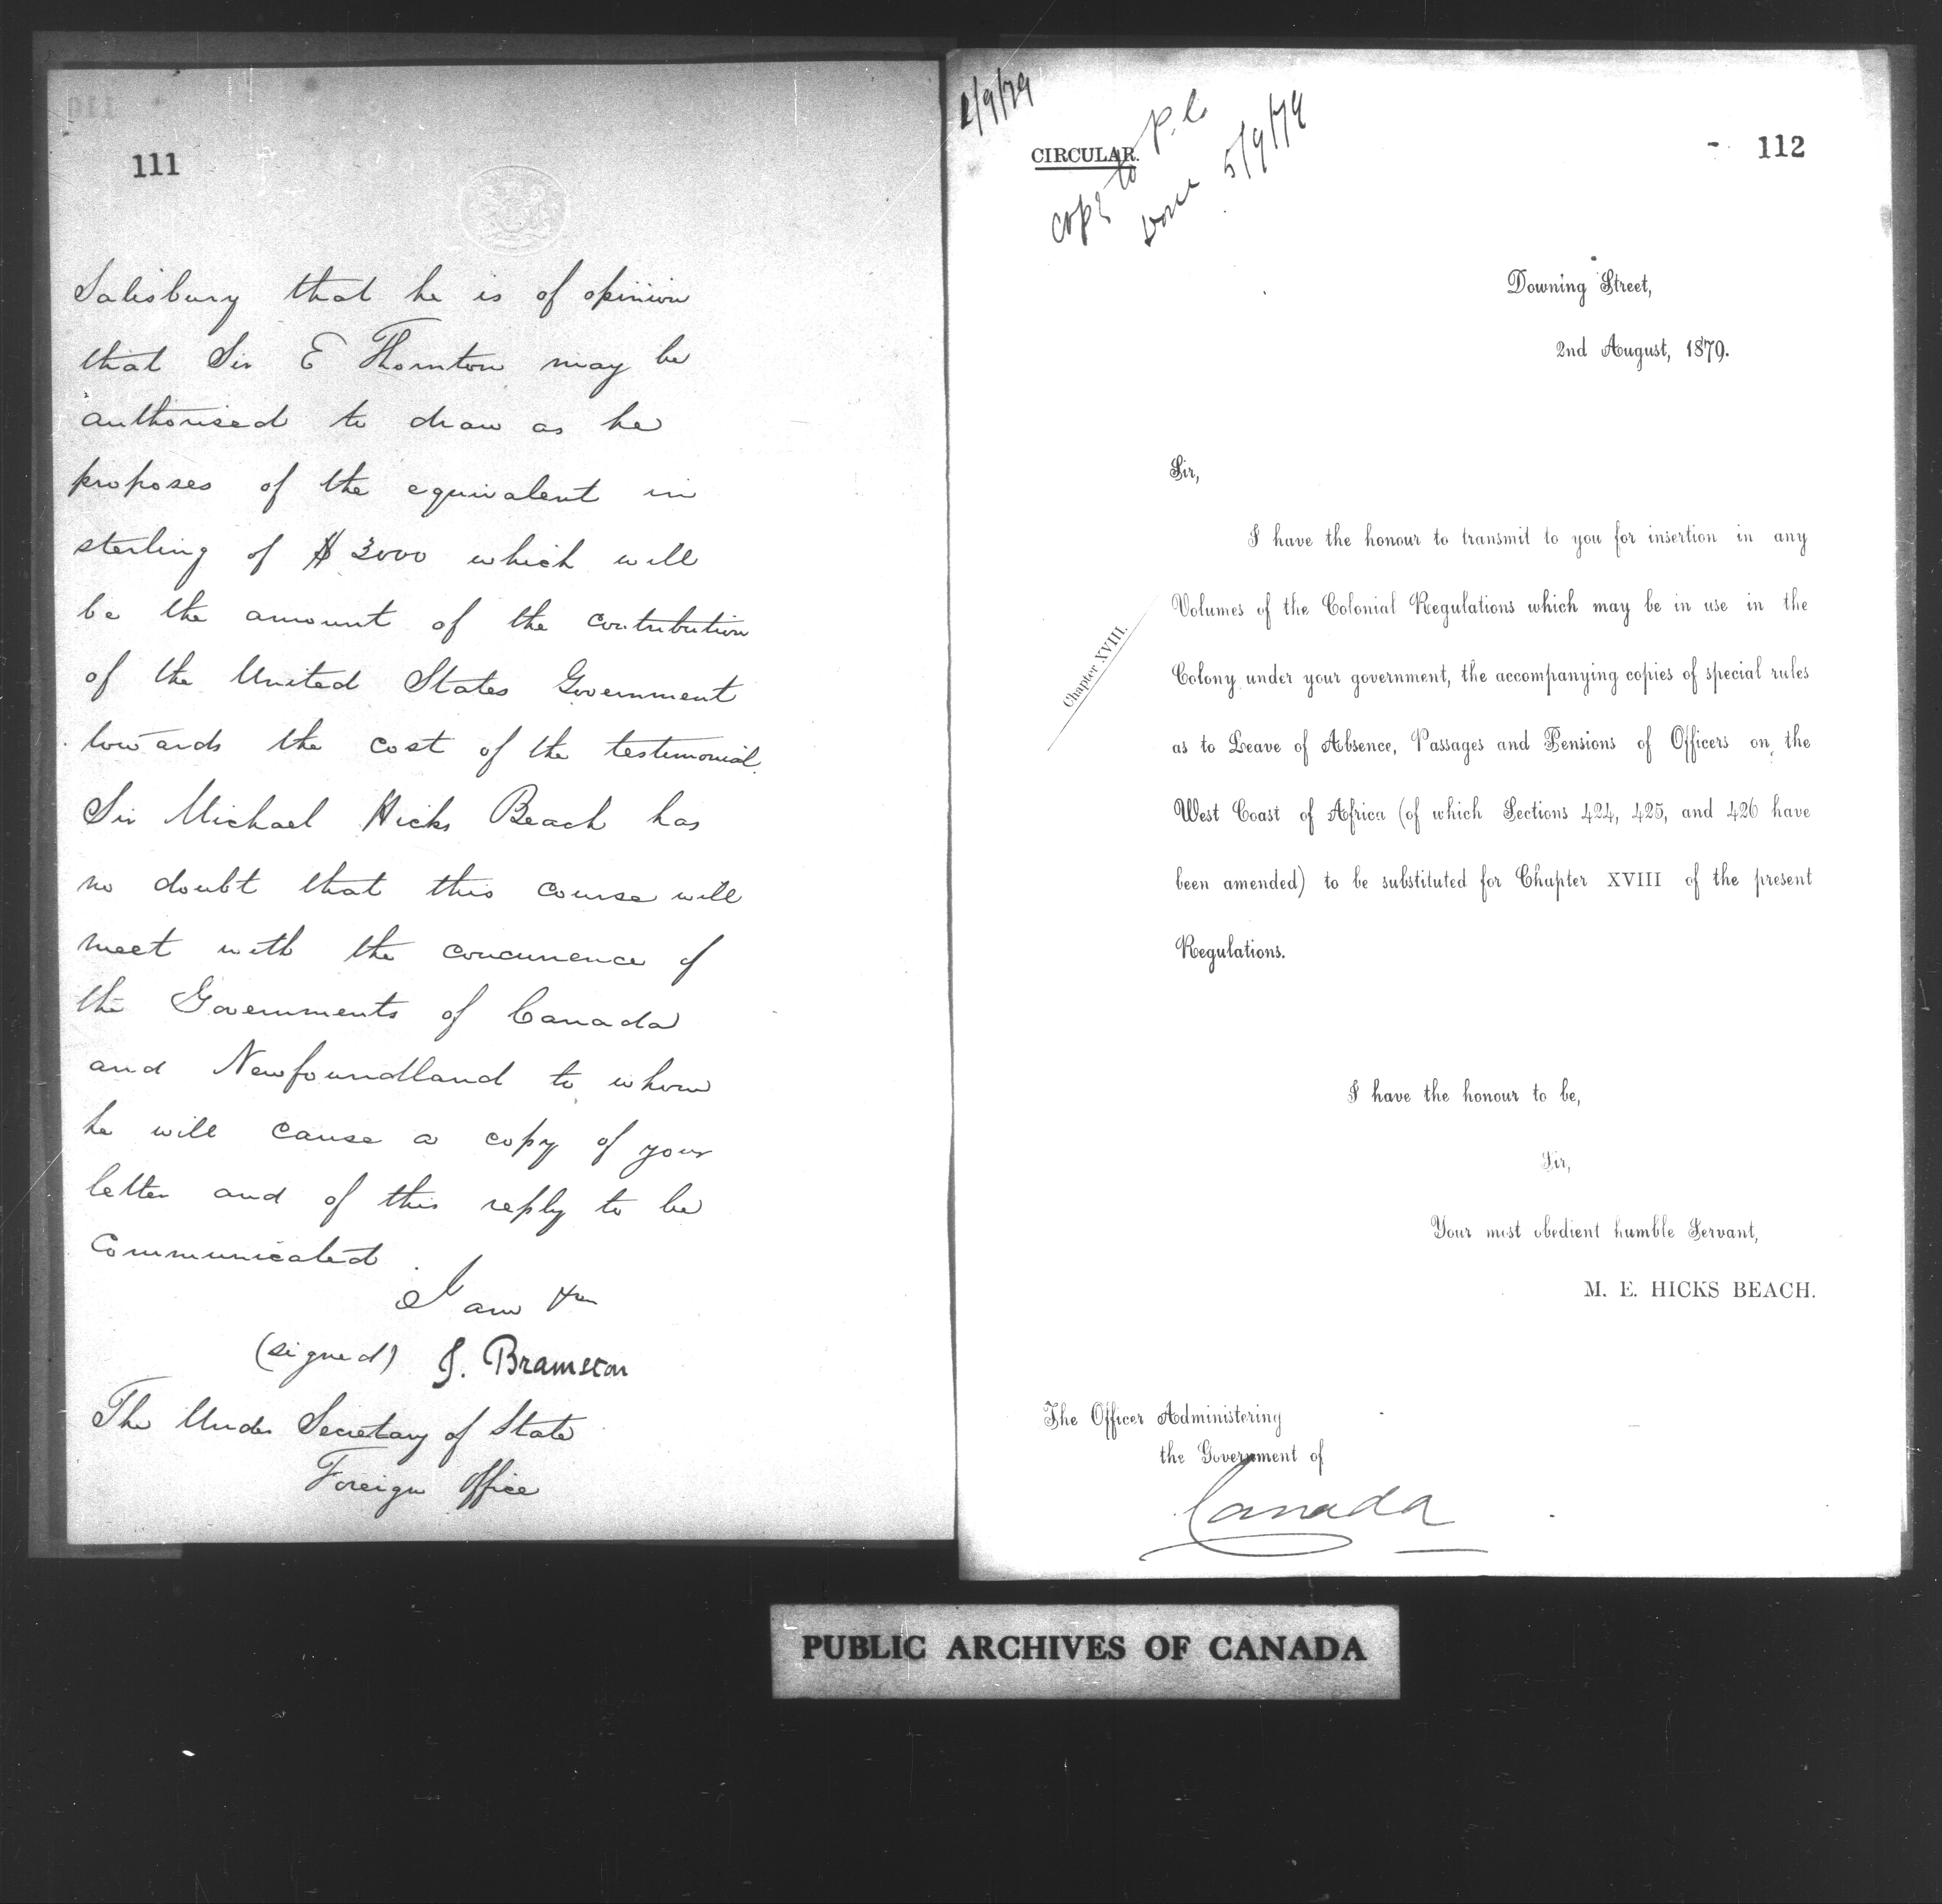 111
Salisbury that he is of opinion
that Sir E Thornton may be
authorised to draw as he
proposes of the equivalent in
sterling of $ 3000 which will
be the amount of the contribution
of the United States Government
towards the cost of the testimonial.
Sir Michael Hicks Beach has
no doubt that this course will
meet with the concurrence of
the Governments of Canada
and Newfoundland to whom
he will cause a copy of your
letter and of this reply to be
communicated.
I am &c
(signed) J. Bramston
The Under Secretary of State
Foreign Office
2/9/79
CIRCULAR.
copy to P.C.
Done 5/9/79
112
Downing Street,
2nd August, 1879.
Sir,
I have the honour to transmit to you for insertion in any
Volumes of the Colonial Regulations which may be in use in the
Chapter XVIII.
Colony under your government, the accompanying copies of special rules
as to Leave of Absence, Passages and Pensions of Officers on the
West Coast of Africa (of which Sections 424, 425, and 426 have
been amended) to be substituted for Chapter XVIII of the present
Regulations.
I have the honour to be,
Sir,
Your most obedient humble Servant,
M. E. HICKS BEACH.
The Officer Administering
the Government of
Canada
PUBLIC ARCHIVES OF CANADA